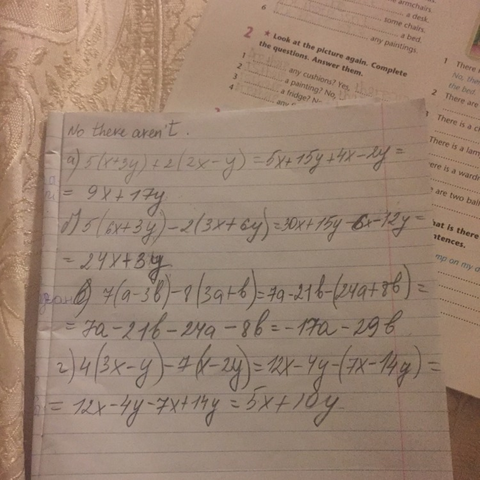 armchairs.
a desk.
6 some chairs.
a bed.
any paintings.
2 * Look at the picture again. Complete
the questions. Answer them.
1 any cushions? Yes,
2 a painting? No,
3 a fridge? No
4 any
1 There
No, the
the bed
2 There are
1 There is a c
There is a lam
ere is a wardr
re are two ball
hat is there
entences.
mp on my d
No there aren't.
а) 5(x+3y)+2(2x-y)=5x+15y+4x-2y=
= 9x+17y
б) 5(6x+3y)-2(3x+6y)=30x+15y-6x-12y=
= 24x+3y
в) 7(a-3b)-8(3a+b)=7a-21b-(24a+8b)=
= 7a-21b-24a-8b=-17a-29b
г) 4(3x-y)-7(x-2y)=12x-4y-(7x-14y)=
= 12x-4y-7x+14y=5x+10y